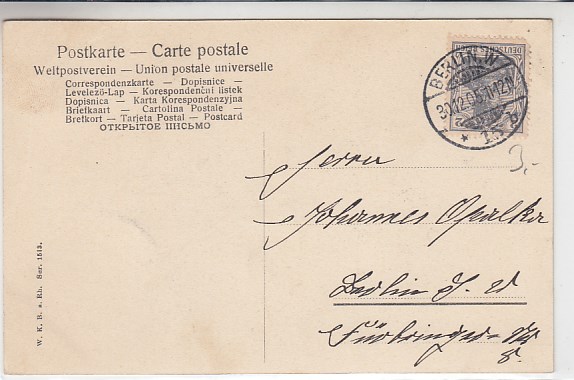 Postkarte — Carte postale
Weltpostverein — Union postale universelle
Correspondenzkarte — Dopisnice —
Levelező-Lap — Korespondenčuí listek
Dopisnica — Karta Korespondenzyjna
Briefkaart — Cartolina Postale —
Brefkort — Tarjeta Postal — Postcard
ОТКРЫТОЕ ПИСЬМО
BERLIN. W
1-2N
DEUTSCHES REICH
2
3,-
Herrn
Johannes Opalka
Berlin S. W
Fürbringer
8.
W. K. B. a. Rh. Ser. 1513.